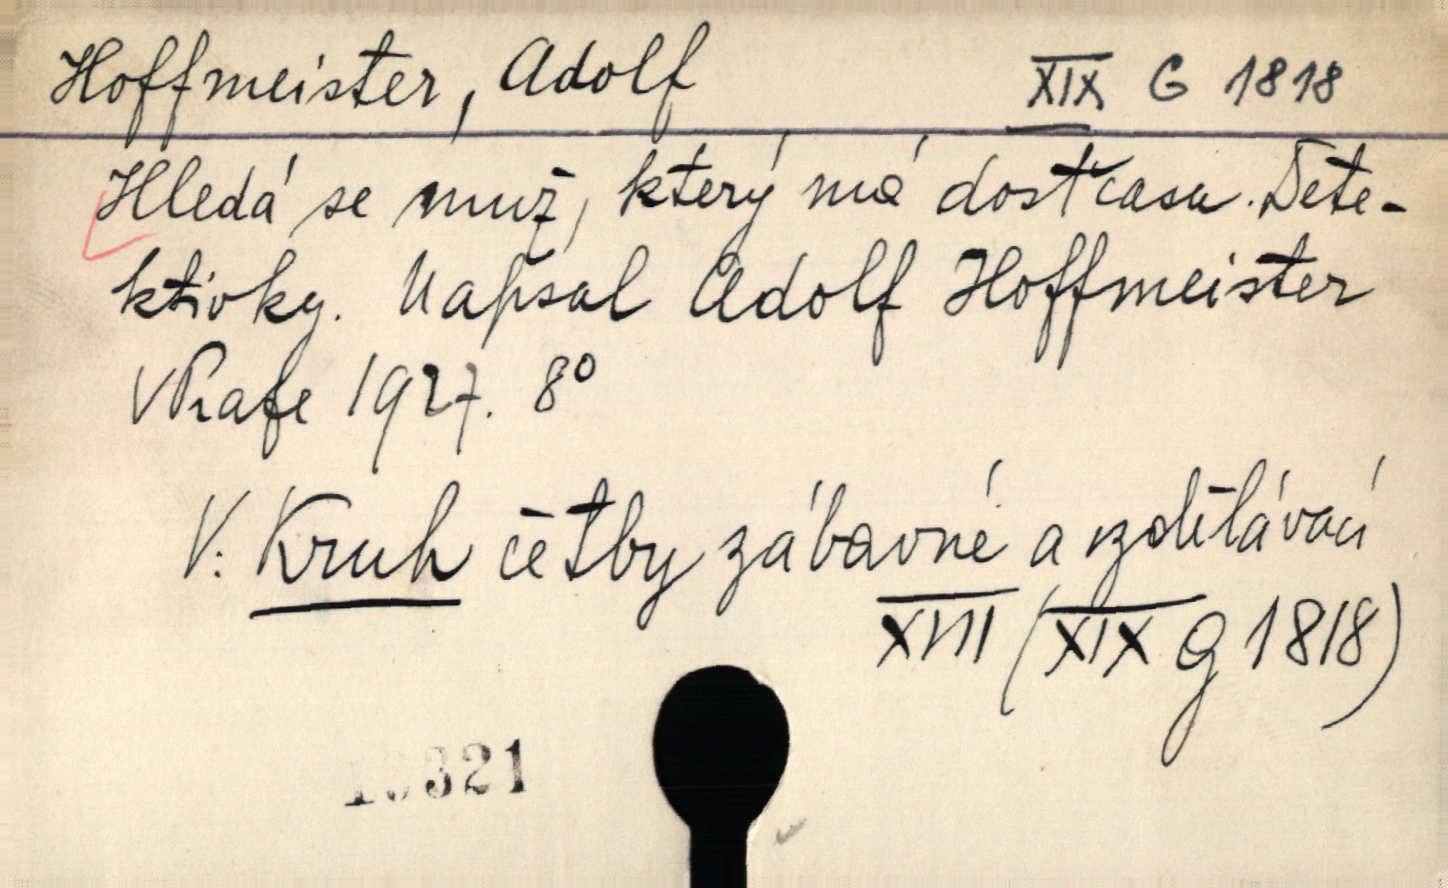 Hoffmeister, Adolf XIX G 1818
Hledá se muž, který má dosť času. Dete-
ktivky. Napsal Adolf Hoffmeister
V Praze 1927. 8°
V: Kruh četby zábavné a vzdělávací
XVII (XIX G 1818)
321